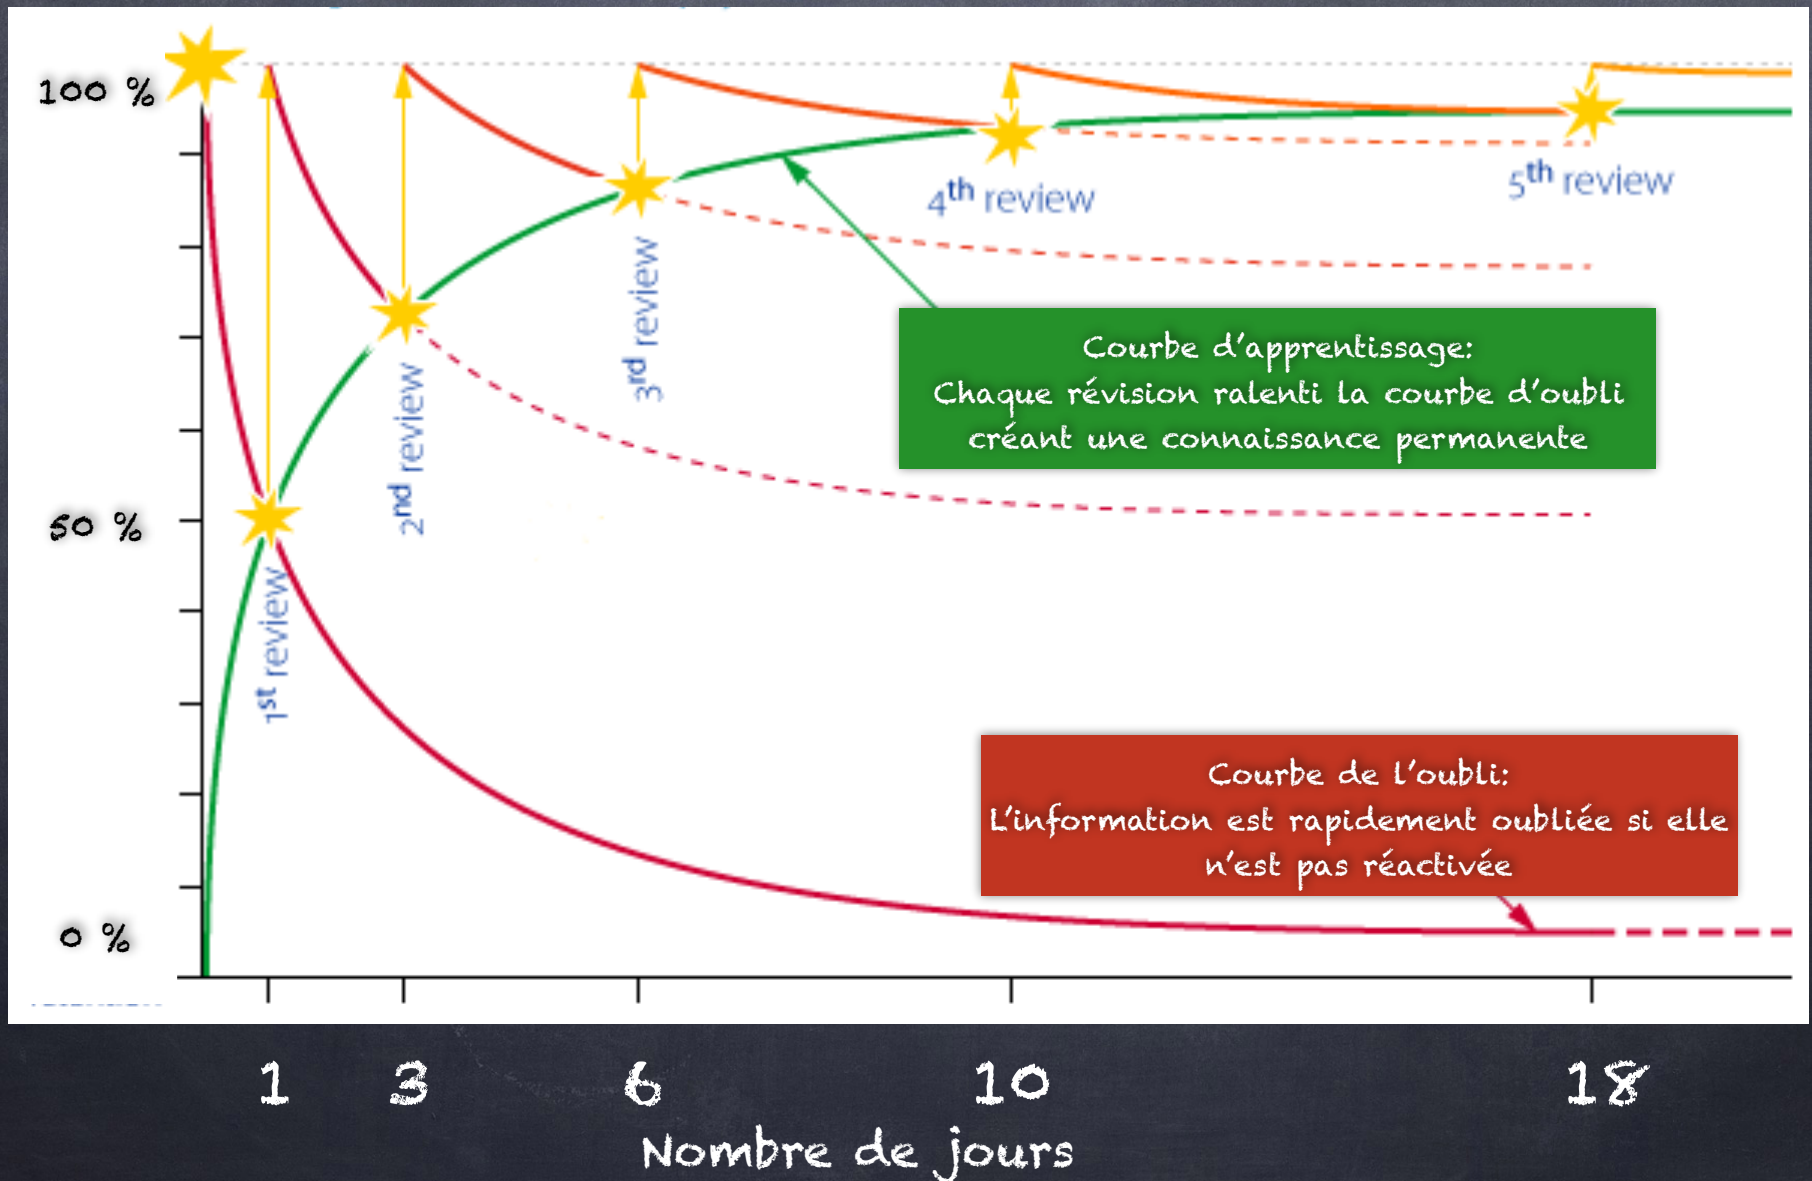 100 %
50 %
0 %
1st review
2nd review
3rd review
4th review
5th review
Courbe d'apprentissage:
Chaque révision ralenti la courbe d'oubli
créant une connaissance permanente
Courbe de l'oubli:
L'information est rapidement oubliée si elle
n'est pas réactivée
1 3 6 10 18
Nombre de jours